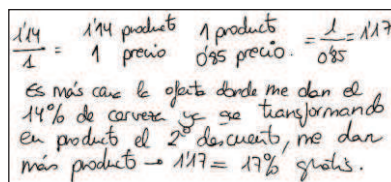 1'14/1 = 1'14 product/1 precio 1 product/0'85 precio. = 1/0'85 = 1'17
Es más cara la oferta donde me dan el
14% de cerveza ya que transformando
en product el 2º descuento, me dan
más product → 1'17 = 17% gratis.